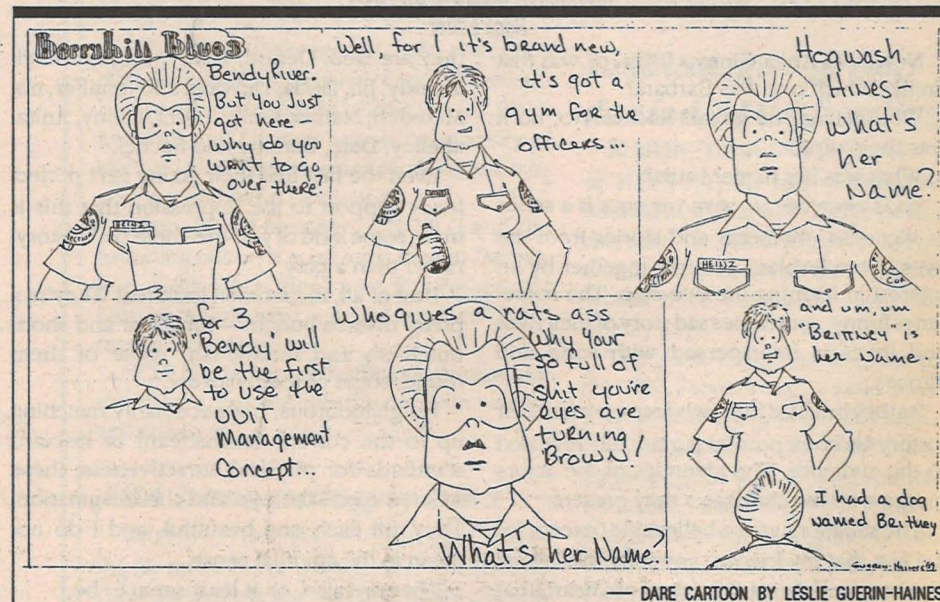 Blues
Bendy River.
But you Just
got here.
Why do you
want to go
over there?
Well, for 1 it's brand new,
it's got a
gym for the
officers...
Hogwash
Hives
what's
her
Name?
for 3
Bendy will
be the first
to use the
Unit
Management
Concept.
Who gives a rats ass
Why Your
so full of
Shit, you're
eyes are
turning
Brown!
What's her Name?
ah um, um
Brithey is
her Name
I had a dog
Named Brithey
Guerin-Haines '92
DARE CARTOON BY LESLIE GUERIN-HAINES